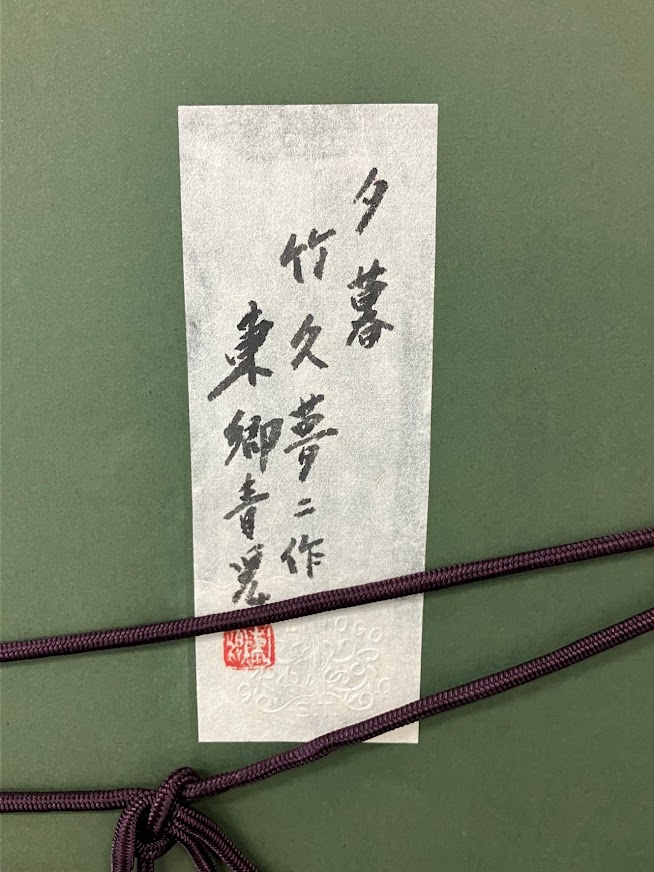 夕暮
竹久夢二作
東郷青児